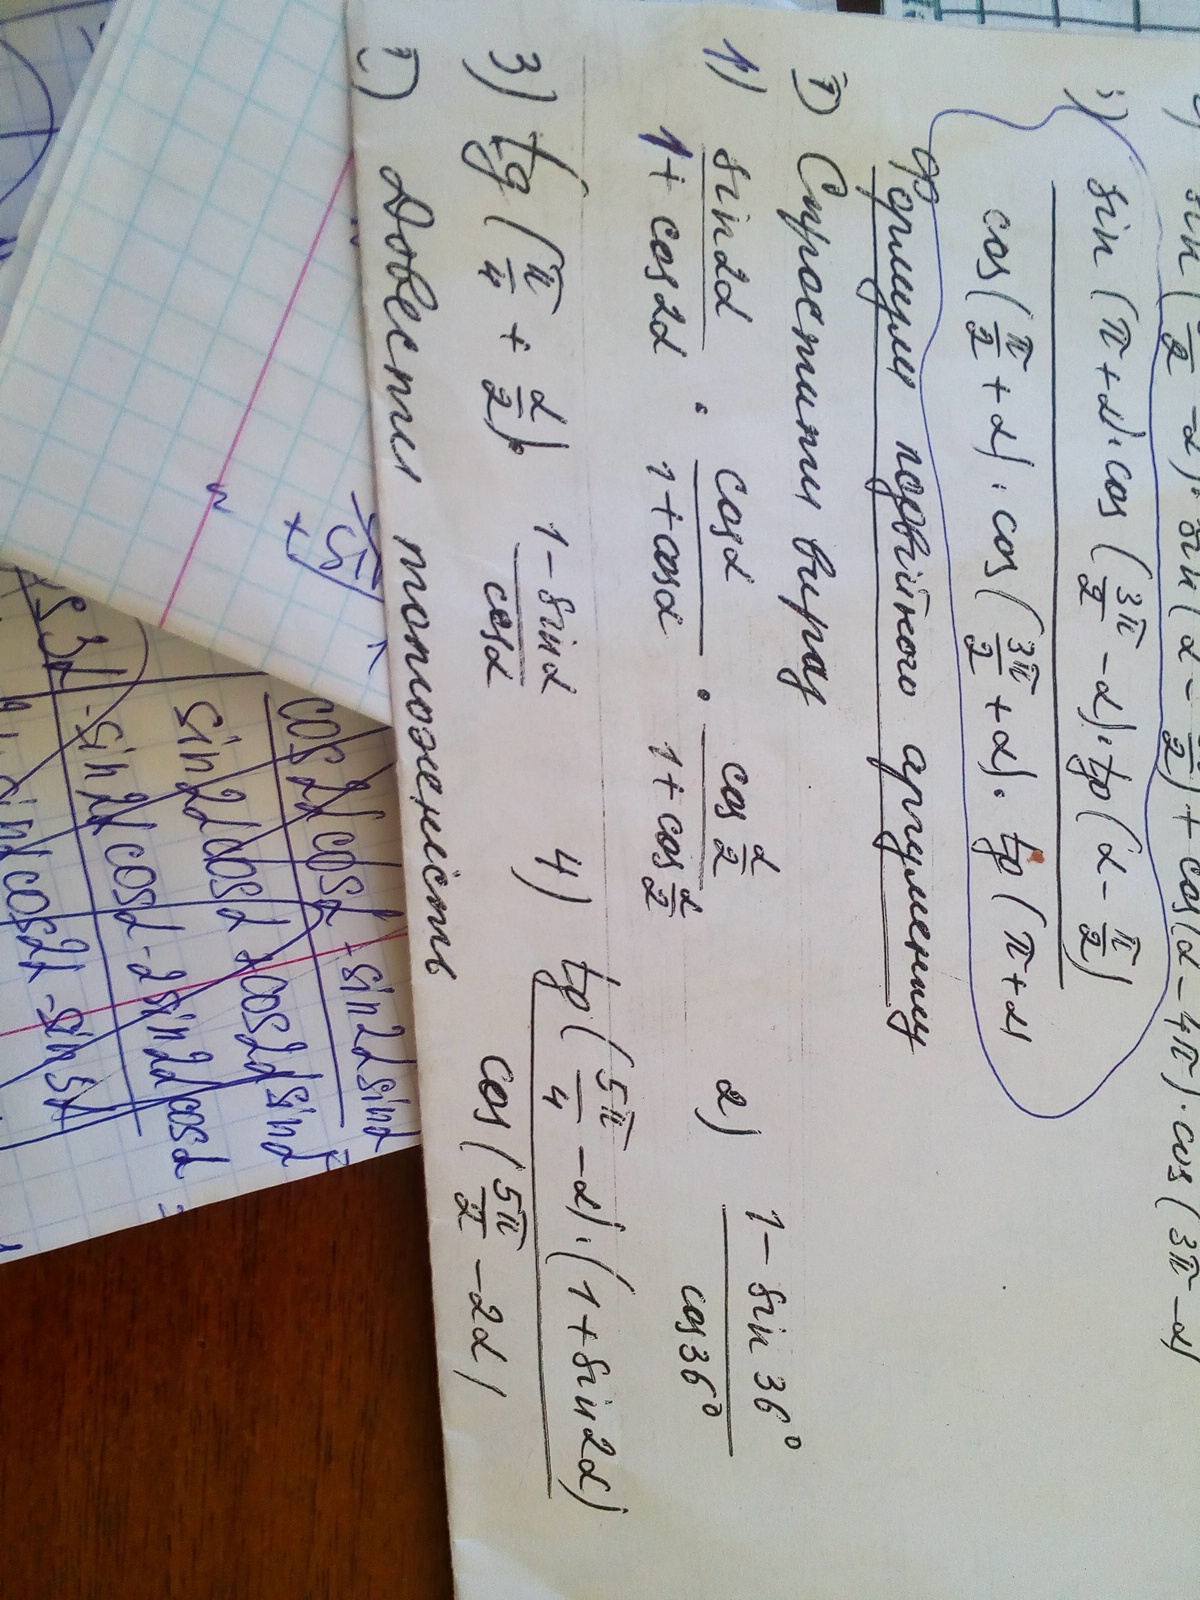 sin (π/2 - α) · sin (α - π/2) + cos(α - 4π) · cos (3π - α)
sin (π + α) · cos (3π/2 - α) · tg (α - π/2)
cos (π/2 + α) · cos (3π/2 + α) · tg (π + α)
Формули подвійного аргументу
I) Спростити вираз
1) sin2α / 1 + cos2α · cosα / 1 + cosα · cos α/2 / 1 + cos α/2 2) 1 - sin 36° / cos 36°
3) tg (π/4 + α/2) · 1 - sinα / cosα 4) tg (5π/4 - α) · (1 + sin2α) / cos (5π/2 - 2α)
II) Довести тотожність
cos2α cosα - sin2α sinα
sin2α cosα + cos2α sinα
- sin2α cosα - 2sin2α cosα